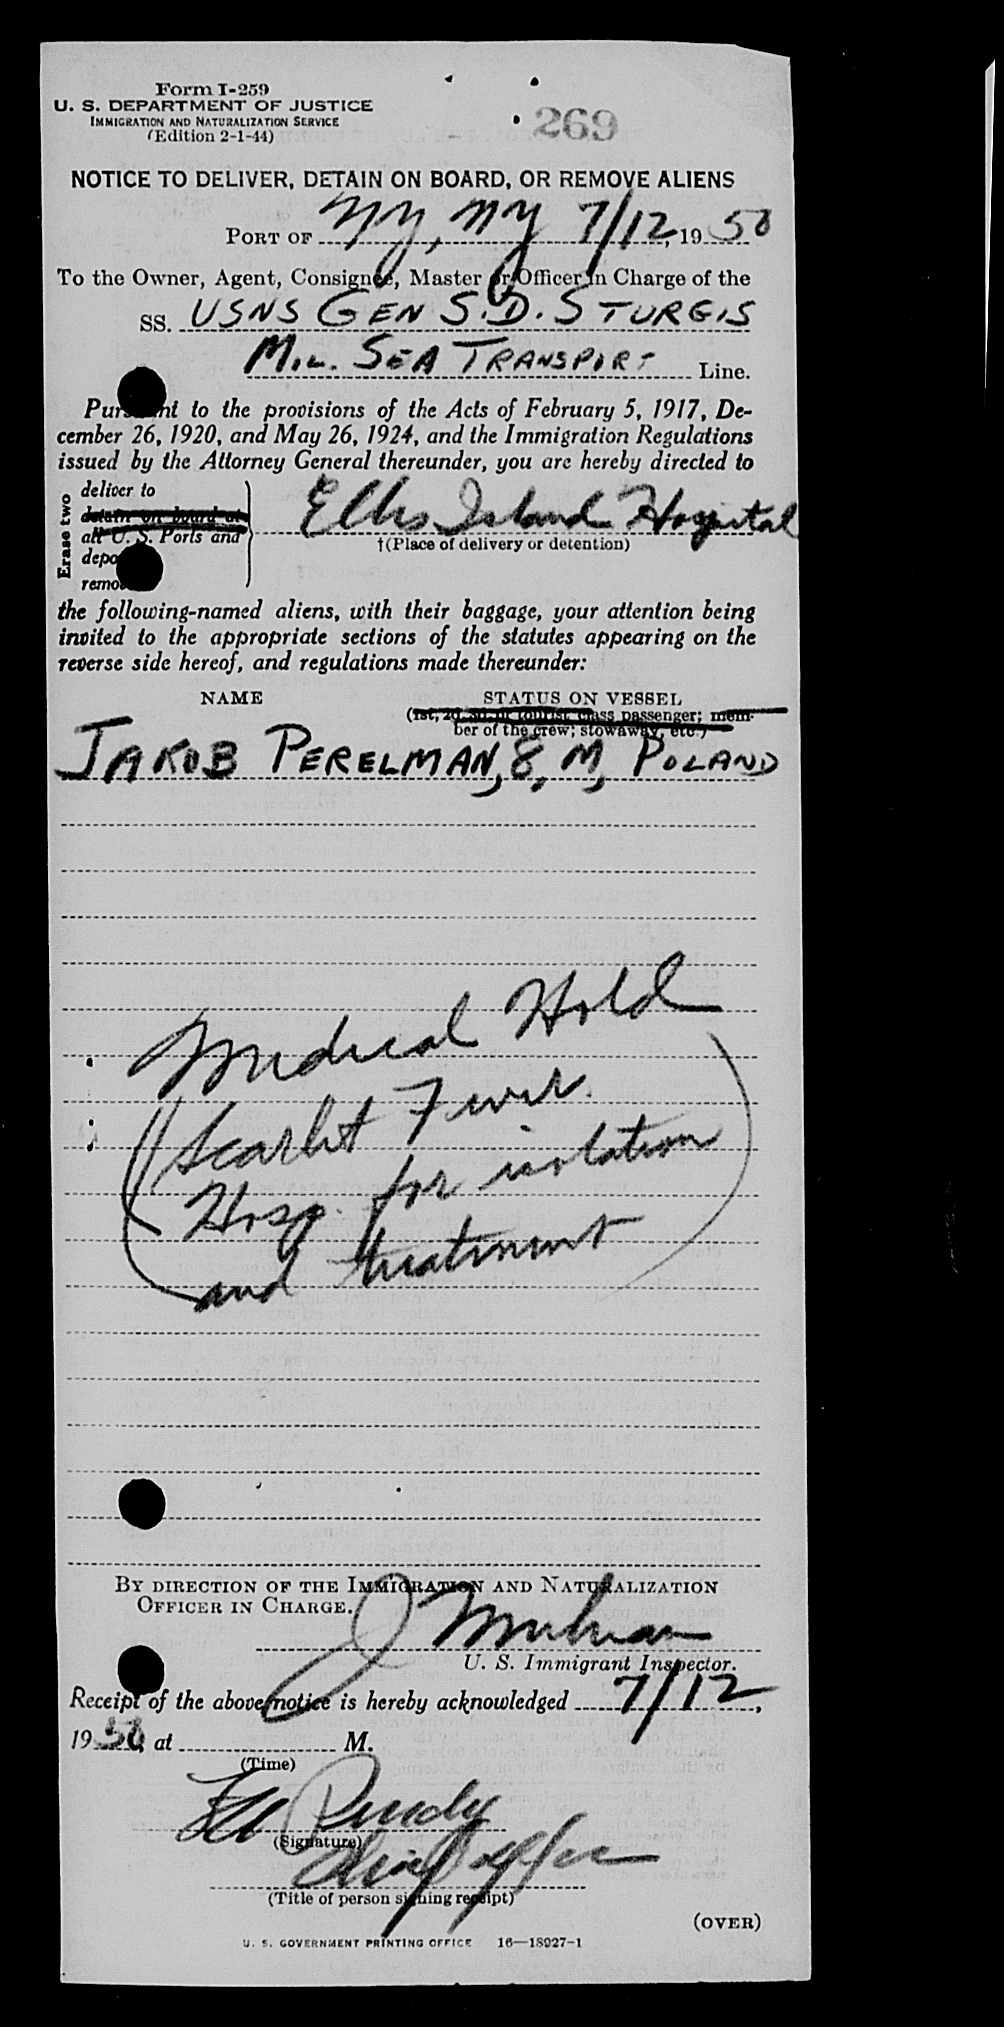 Form I-259
U. S. DEPARTMENT OF JUSTICE
IMMIGRATION AND NATURALIZATION SERVICE
(Edition 2-1-44)
269
NOTICE TO DELIVER, DETAIN ON BOARD, OR REMOVE ALIENS
PORT OF NY, NY 7/12, 19 50
To the Owner, Agent, Consignee, Master or Officer in Charge of the
SS. USNS GEN S.D. STURGIS
MIL. SEA TRANSPORT Line.
Pursuant to the provisions of the Acts of February 5, 1917, De-
cember 26, 1920, and May 26, 1924, and the Immigration Regulations
issued by the Attorney General thereunder, you are hereby directed to
Erase two
deliver to
detain on board at
all U. S. Ports and
remove
Ellis Island Hospital
†(Place of delivery or detention)
the following-named aliens, with their baggage, your attention being
invited to the appropriate sections of the statutes appearing on the
reverse side hereof, and regulations made thereunder:
NAME STATUS ON VESSEL
(1st, 2d, 3d, or tourist class passenger; mem-
ber of the crew; stowaway, etc.)
JAKOB PERELMAN, 8, M, POLAND
Medical Hold
(Scarlet Fever.
Hosp. for isolation
and treatment)
BY DIRECTION OF THE IMMIGRATION AND NATURALIZATION
OFFICER IN CHARGE.
U. S. Immigrant Inspector.
Receipt of the above notice is hereby acknowledged 7/12,
1950, at M.
(Time)
Purdy
(Signature)
Chief Officer
(Title of person signing receipt)
(OVER)
U. S. GOVERNMENT PRINTING OFFICE 16—18927-1